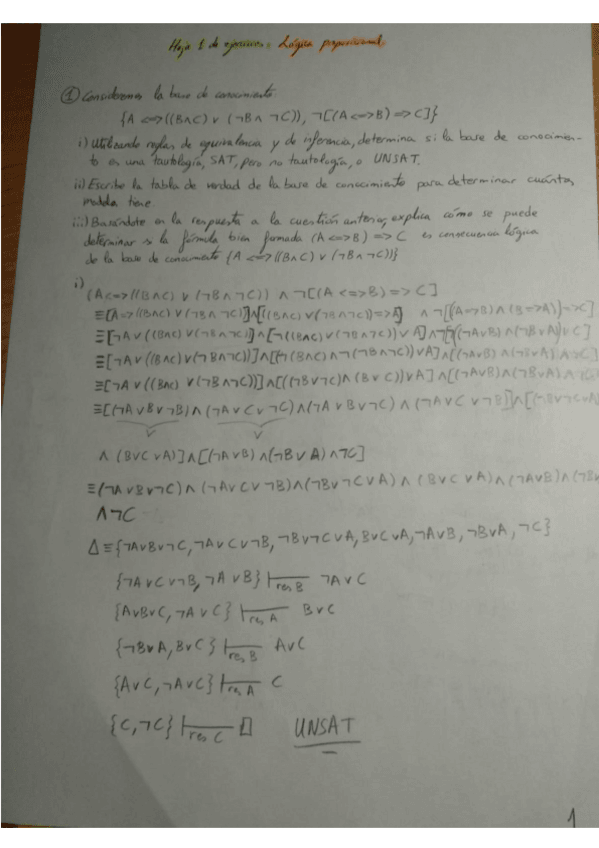 Hoja 1 de ejercicios: Lógica proposicional
① Consideremos la base de conocimiento:
{A <=> ((B∧C) ∨ (¬B∧¬C)), ¬[(A<=>B) => C]}
i) Utilizando reglas de equivalencia y de inferencia, determina si la base de conocimien-
to es una tautología, SAT, pero no tautología, o UNSAT.
ii) Escribe la tabla de verdad de la base de conocimiento para determinar cuántos
modelos tiene.
iii) Basándote en la respuesta a la cuestión anterior, explica cómo se puede
determinar si la fórmula bien formada (A<=>B) => C es consecuencia lógica
de la base de conocimiento {A <=> ((B∧C) ∨ (¬B∧¬C))}
i)
(A<=>((B∧C) ∨ (¬B∧¬C)) ∧ ¬[(A<=>B) => C]
≡[A=>((B∧C)∨(¬B∧¬C))]∧[((B∧C)∨(¬B∧¬C))=>A] ∧ ¬[[(A=>B)∧(B=>A)]=>C]
≡[¬A∨((B∧C)∨(¬B∧¬C))]∧[¬((B∧C)∨(¬B∧¬C))∨A]∧¬[¬((¬A∨B)∧(¬B∨A))∨C]
≡[¬A∨((B∧C)∨(¬B∧¬C))]∧[(¬(B∧C)∧¬(¬B∧¬C))∨A]∧[(¬A∨B)∧(¬B∨A)∧¬C]
≡[¬A∨((B∧C)∨(¬B∧¬C))]∧[((¬B∨¬C)∧(B∨C))∨A]∧[(¬A∨B)∧(¬B∨A)∧¬C]
≡[(¬A∨B∨¬B)∧(¬A∨C∨¬C)∧(¬A∨B∨¬C)∧(¬A∨C∨¬B)]∧[(¬B∨¬C∨A)
V V
∧ (B∨C∨A)]∧[(¬A∨B)∧(¬B∨A)∧¬C]
≡(¬A∨B∨¬C)∧(¬A∨C∨¬B)∧(¬B∨¬C∨A)∧(B∨C∨A)∧(¬A∨B)∧(¬B∨
∧¬C
Δ≡{¬A∨B∨¬C,¬A∨C∨¬B,¬B∨¬C∨A,B∨C∨A,¬A∨B,¬B∨A,¬C}
{¬A∨C∨¬B,¬A∨B} ⊢ res B ¬A∨C
{A∨B∨C,¬A∨C} ⊢ res A B∨C
{¬B∨A,B∨C} ⊢ res B A∨C
{A∨C,¬A∨C} ⊢ res A C
{C,¬C} ⊢ res C [] UNSAT
1